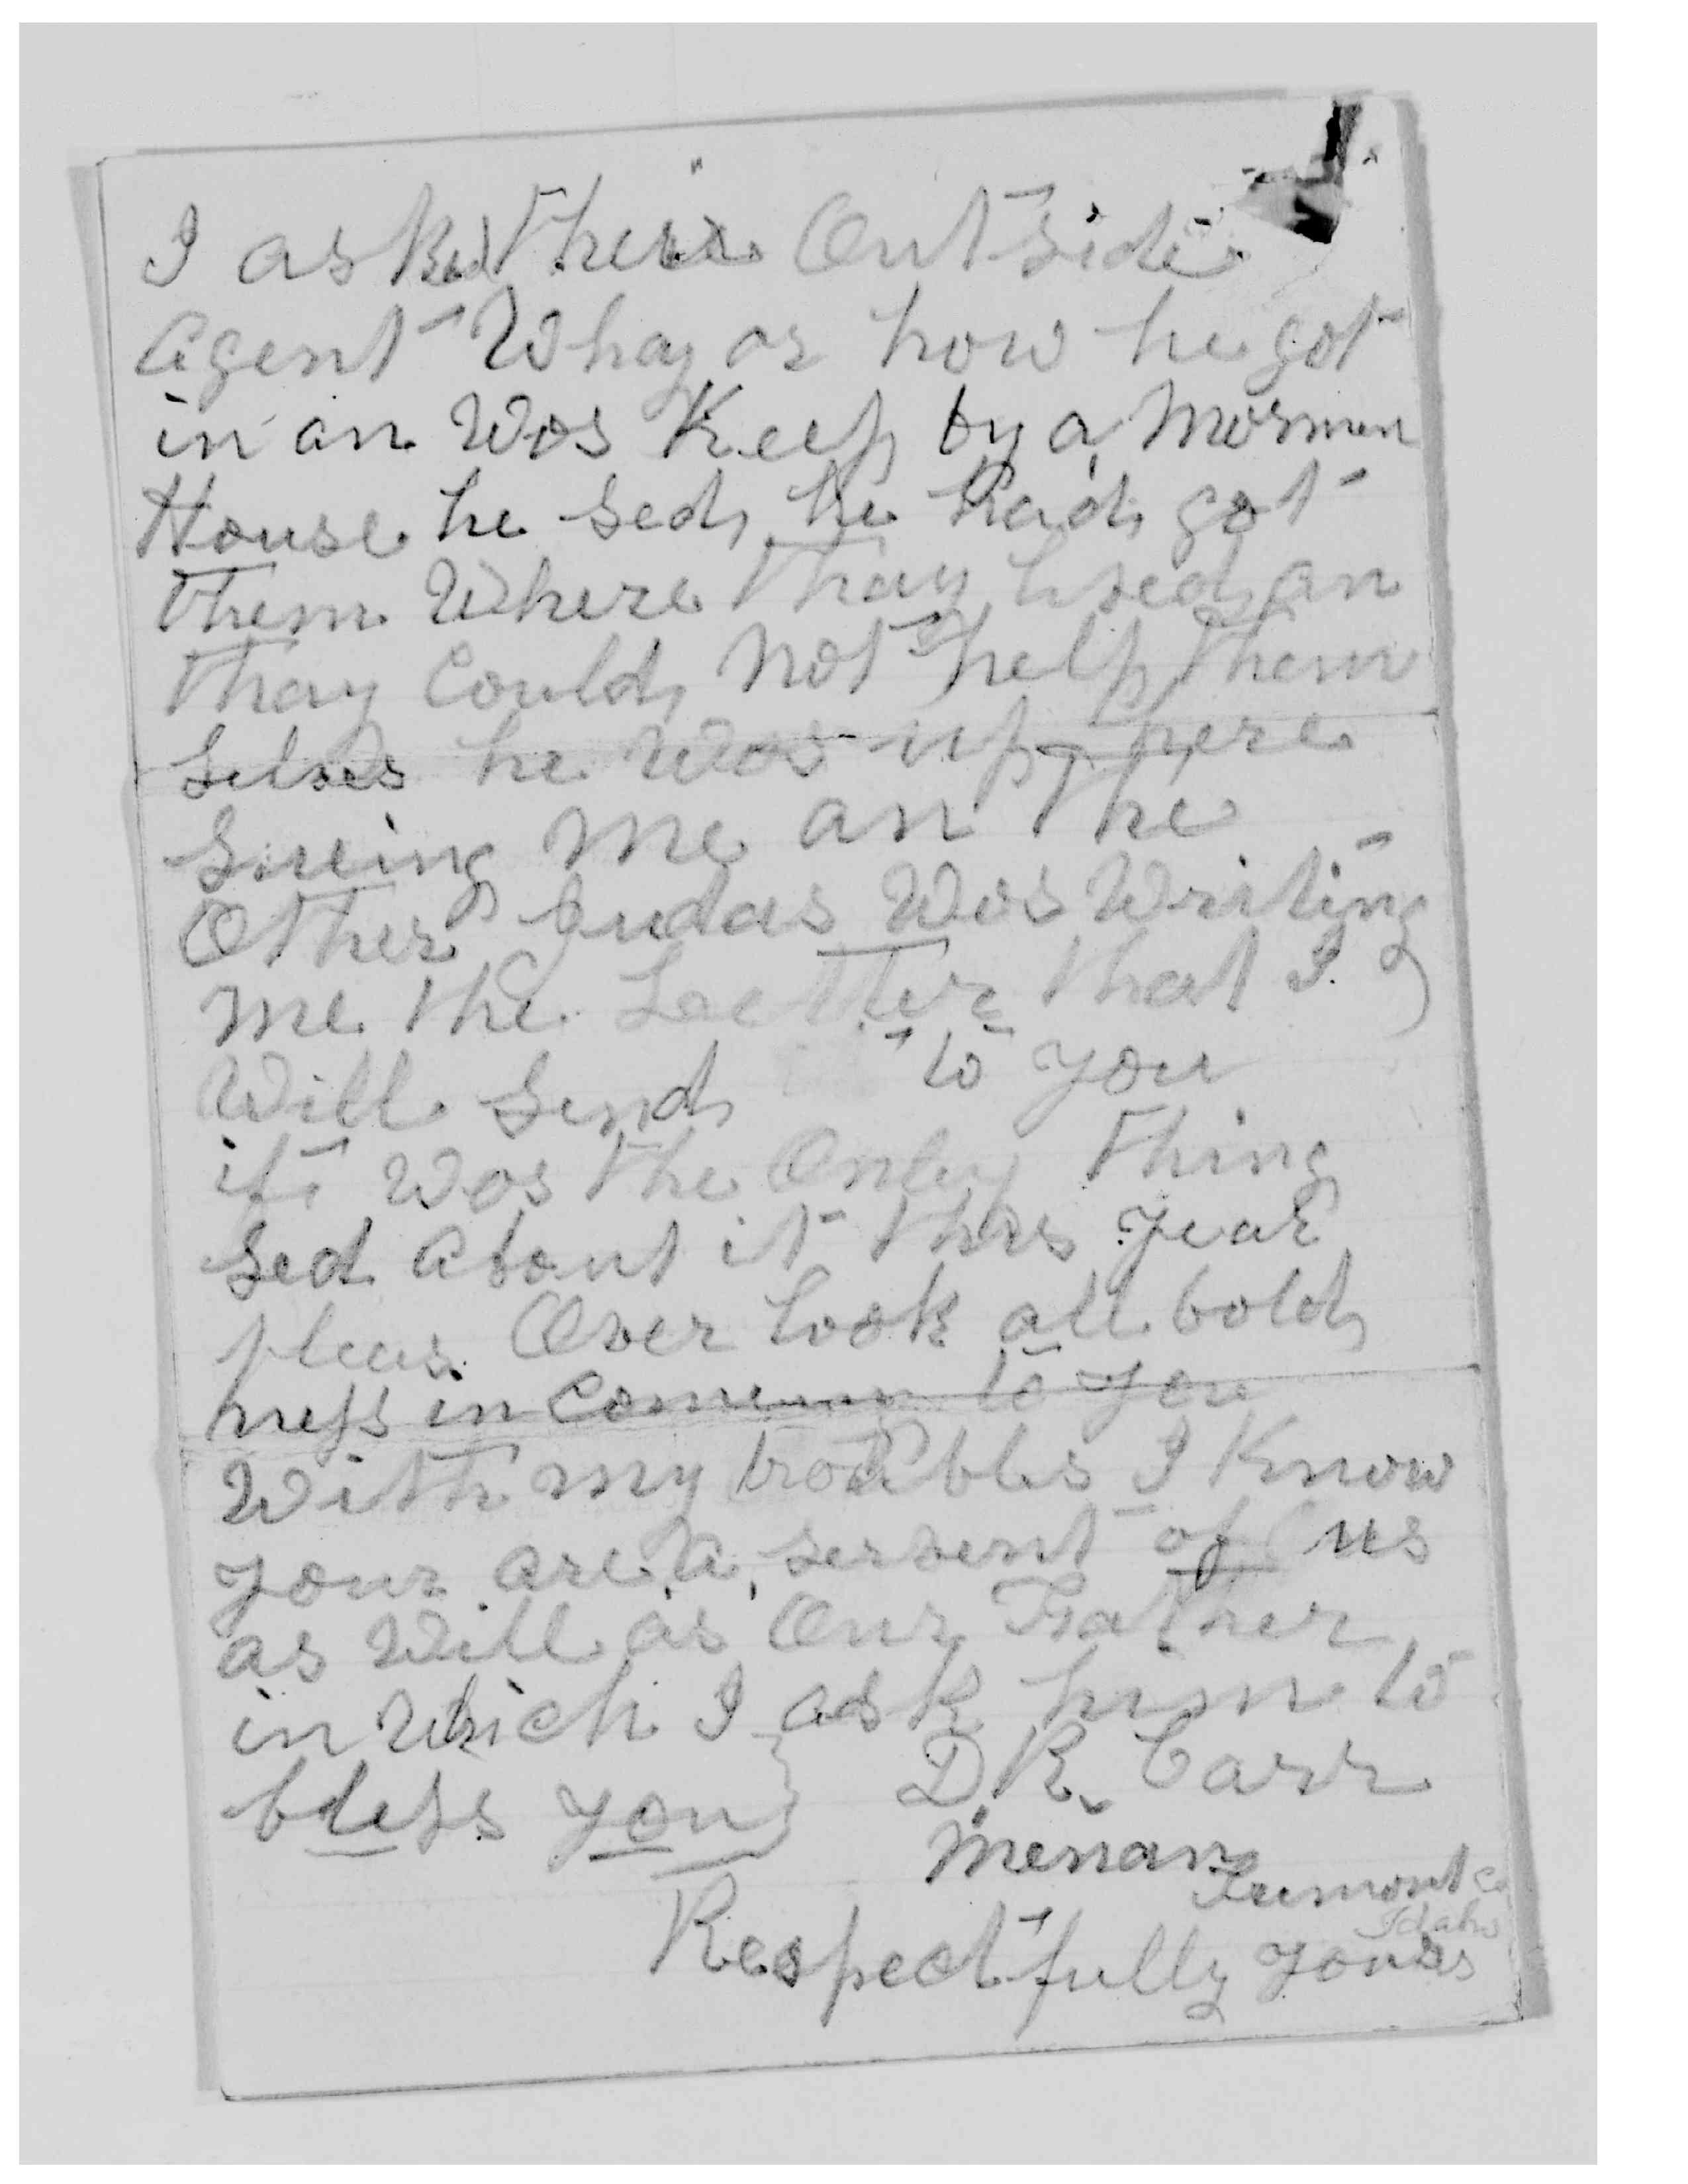 I asked their Out side
agent Whay or how he got
in an Wos Keep by a Mormon
House he sed he had got
them Where thay used an
thay Could Not help them
selves he Was up here
sueing me an the
Other Judas Wos Writing
me the Letter that I
Will Send to you
it Wos the Only thing
sed about it this year
pleas Over look all bold
ness in Comeing to you
With my troubbls I Know
your are a servent of us
as Will as Our Father
in Which I ask him to
bless you } D. R. Carr
Menan
Fremont Co
Idaho
Respectfully yours